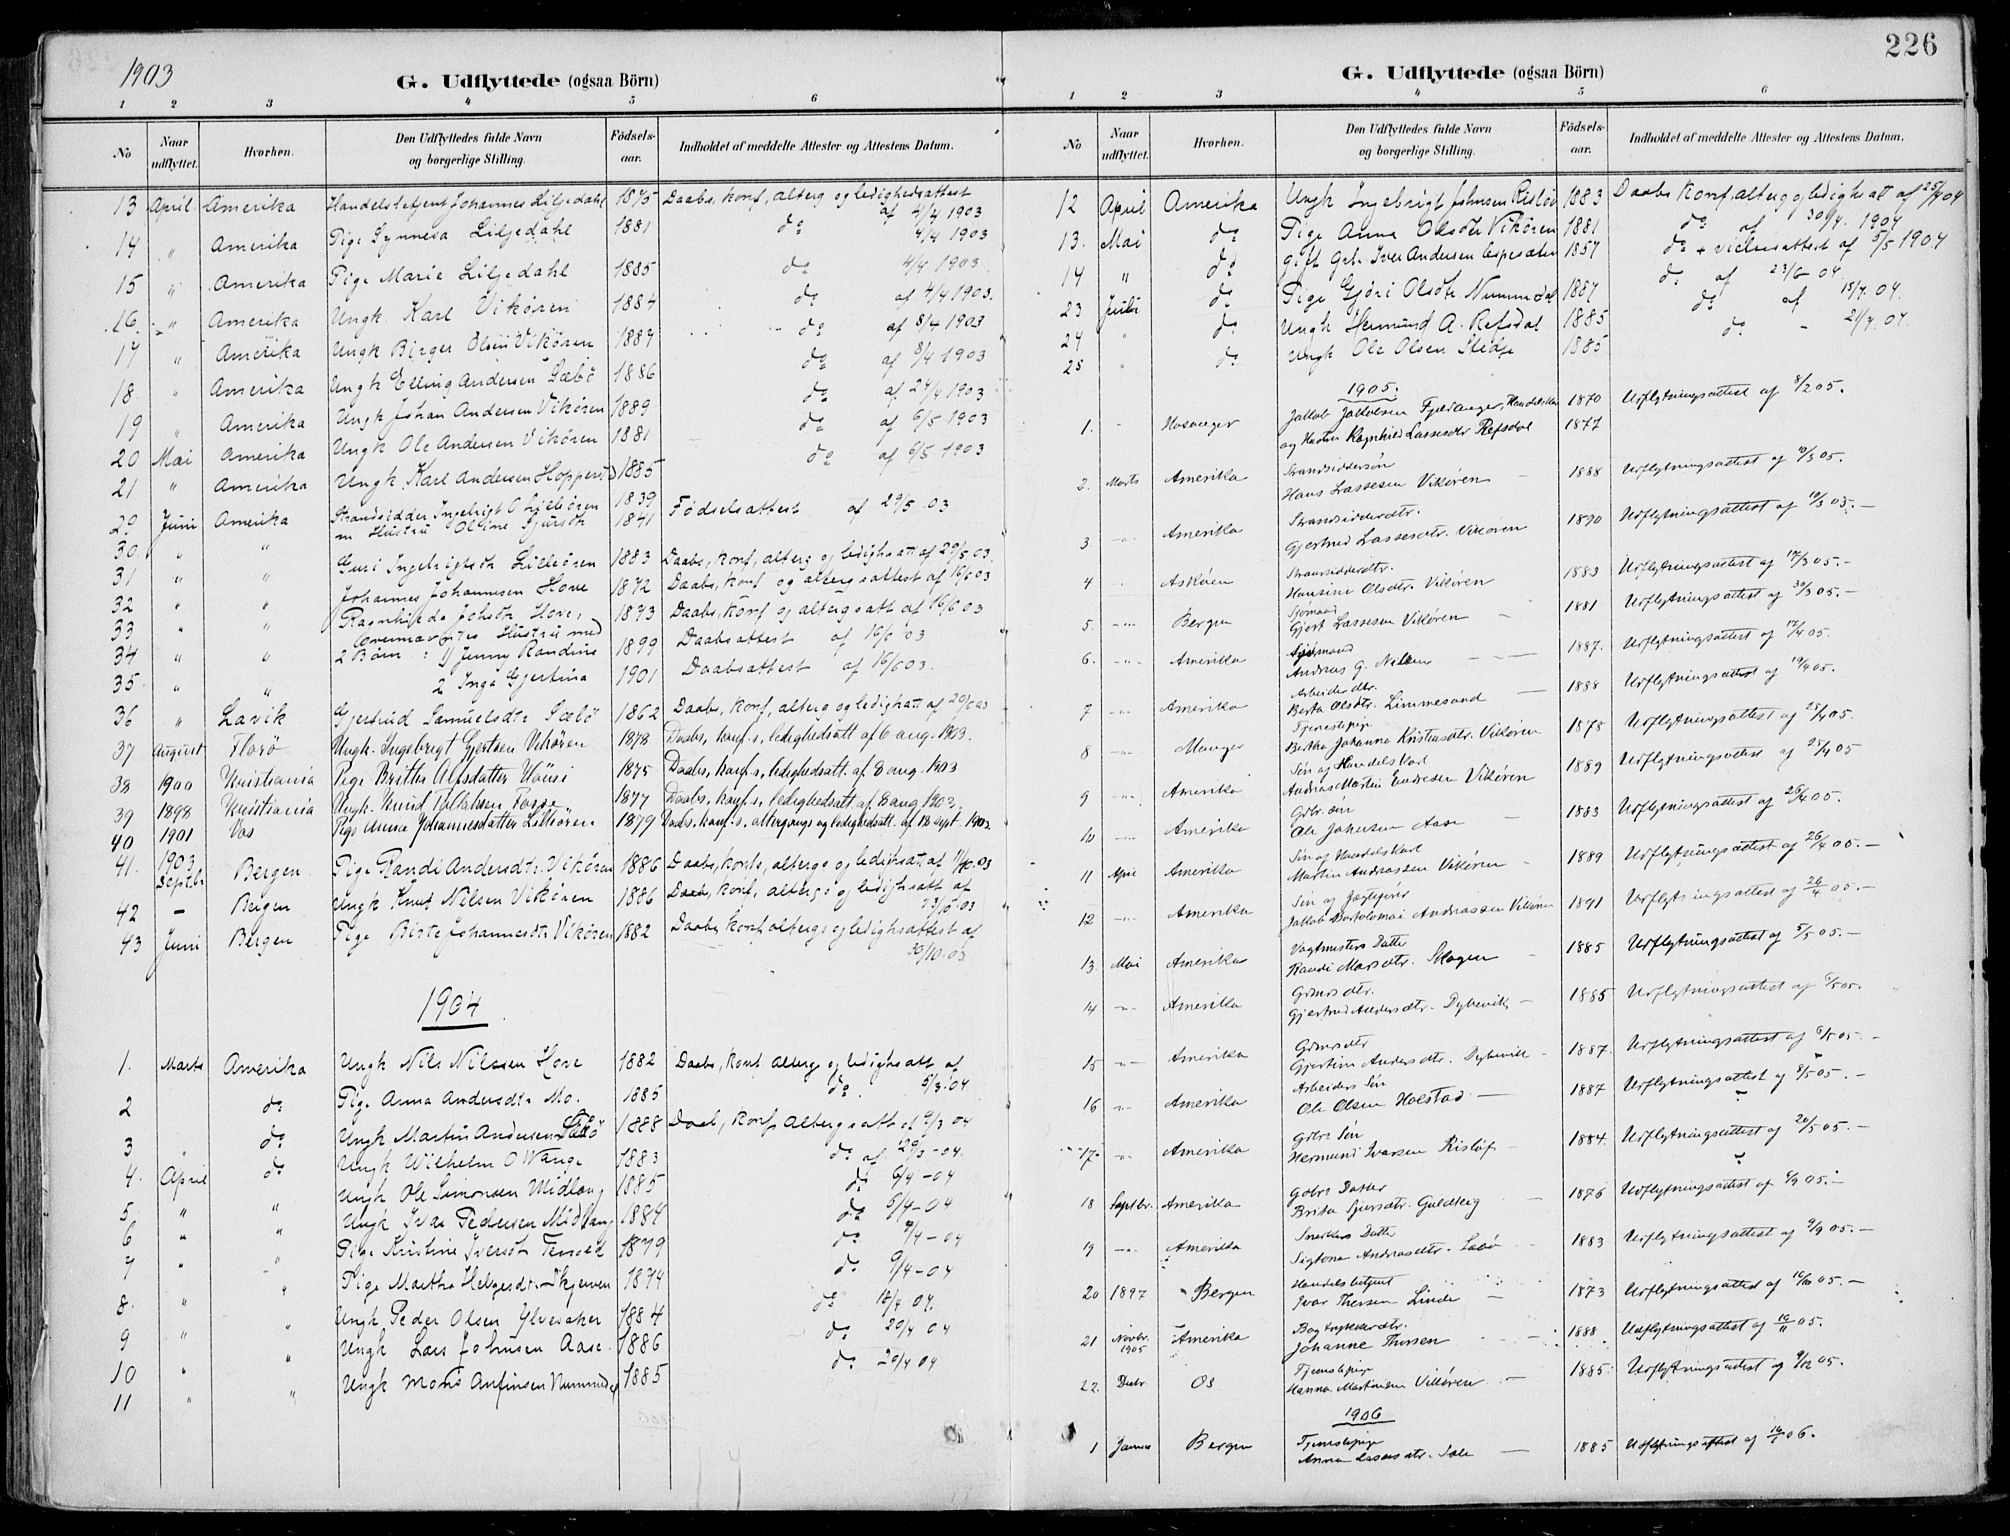 1903
G. Udflyttede (ogsaa Börn)
1 2 3 4 5 6
No Naar udflyttet. Hvorhen. Den Udflyttedes fulde Navn og borgerlige Stilling. Födselsaar. Indholdet af meddelte Attester og Attestens Datum.
13 April Amerika Johannes Liljedahl 1875 Daabs, konf, alterg og ledighedsattest af 4/4 1903
14 " Amerika Pige Synneva Liljedahl 1881 do 4/4 1903
15 " Amerika Pige Marie Liljedahl 1885 do 4/4 1903
16 " Amerika Ungk. Karl Vikören 1884 do af 4/4 1903.
17 " Amerika Ungk Birger Olsen Vikören 1887 do af 8/4 1903
18 " Amerika Ungk Elling Andersen Sæbö 1886 do af 8/4 1903
19 " Amerika Ungk Johan Andersen Vikören 1889 do af 24/4 1903
20 Mai Amerika Ungk Ole Andersen Vikören 1881 do af 6/5 1903
21 " Amerika Ungk. Karl Andersen Hopperst 1885 do af 6/5 1903
29 Juni Amerika Strandsidder Ingebrigt O Lilleören 1839 Födselsattest af 29/5 03
30 " " m Hustru Oline Sjursdt 1841
31 " " Guri Ingebrigtsdt Lilleören 1883 Daabs, konf, alterg og ledighsatt af 29/5 03
32 " " Johannes Johannesen Hove 1872 Daabs, konf og altergsattest af 16/6 03
33 " " Ragnhilda Johsdt Hove, 1873 Daabs, konf og altergsatt af 16/6 03
34 " " ovennævntes Hustru med 2 Börn : 1) Jenny Randine 1899 Daabsattest af 16/6 03
35 " " 2 Inga Gjertina 1901 Daabsattest af 16/6 03.
36 " Lavik Gjertrud Samuelsdtr Sæbö 1862 Daabs, konf, alterg og ledighatt af 20/6 03
37 August Florö Ungk. Ingebrigt Gjertsen Vikören 1878 Daabs, konf.s, ledighedsatt af 6 aug. 1903.
38 1900 Kristiania Pige Brithe Alfsdatter 1875 Daabs, konf.s, ledighedsatt. af 8 aug. 1903
39 1898 Kristiania Ungk. Knud 1877 Daabs, konf.s, ledighedsatt. af 8 aug 1903.
40 1901 Vos Pige Anna Johannesdatter Lilleören 1879 Daabs, konf.s, altergangs og ledighedsatt. af 18 sept 1903.
41. 1903 Septbr Bergen Pige Randi Andersdtr Vikören 1886 Daabs, konfs, altergs og ledighsat. af 11/10.03
42 — Bergen Ungk Knut Nilsen Vikören 1886 Daabs, konf, altergs og ledighsatt af 23/10 03
43 Juni Bergen Pige Birte Johannesdtr Vikören 1882 Daabs, konf altergs og ledighsattest af 30/10.03
1904
1. Marts Amerika Ungk Nils Nilssen Hove 1882 Daabs, konf alterg og ledighsatt af
2 do Pige Anna Andersdtr Mo. 1885 do 5/3.04
3 " do Ungk Martin Andersen Sæbö 1888 Daab, konf altergsatt af 9/3 04
4. April do Ungk Wilhelm O Wange 1883 do af 29/3-04.
5. " " Ungk Ole Simonsen Midlang 1885 do 6/4-04
6 " " Ungk Ivar Pedersen Midlang 1884 do 5/4-04
7 " " Pige Kristine Iversdt 1879 do 9/4-04
8. " " Pige Martha Helgesdtr. 1874 do 9/4-04
9 " " Ungk Peder Olsen Ylvesaker 1884 do 18/4 04.
10 " " Ungk Lars Johnsen Aase 1886 do 20/4 04
11 " " Ungk Mons Anfinsen 1885 do 20/4 04
226
G. Udflyttede (ogsaa Börn)
1 2 3 4 5 6
No Naar udflyttet. Hvorhen. Den Udflyttedes fulde Navn og borgerlige Stilling. Födselsaar. Indholdet af meddelte Attester og Attestens Datum.
12 April Amerika Ungk Ingebrigt Johnsen Rislöv 1883 Daabs konf, alterg og ledigh att af 25/4 04
13. Mai do Pige Anna Olsdtr Vikören 1881 do af 30/4. 1904
14 " do gift Gbr. Iver Andersen 1857 do + vielsesattest af 5/5 1904
23 Juli do Pige Gjöri Olsdtr. 1887 do af 23/6 04
24 " do Ungk Hermund A. Refsdal 1885 do af 15/7.04.
25 " do Ungk Ole Olsen Hedje 1885 do - 21/7.04.
1905.
1. " Jakob Jakobsen Fjeldanger, 1870 Udflytningsattest af 8/2 05.
og Hustru Ragnhild Lassesdtr Refsdal 1877
2. Marts Amerika Strandsiddersön Hans Lassesen Vikören 1888 Udflytningsattest af 10/3 05.
3. " Amerika Strandsidderdtr. Gjertrud Lassesdtr. Vikören 1890 Udflytningsattest af 10/3 05.—
4 " Asköen Strandsidderdtr. Hansine Olsdtr. Vikören 1883 Udflytningsattest af 17/3 05.—
5. " Bergen Sjömand Gjert Lassesen Vikören 1881 Udflytningsattest af 30/3 05.—
6. " Amerika Sjömand Andreas G. Nilsen 1887. Udflytningsattest af 17/4 05.
7 " Amerika Arbeiderdtr. Berta Olsdtr. Limmesand 1888 Udflytningsattest af 19/4 05.
8 " Manger Tjenestepige Bertha Johanna Kristensdtr. Vikören 1878 Udflytningsattest af 25/4 05.
9 " Amerika Sön og Handelskarl Andreas Martin Endresen Vikören 1889 Udflytningsattest af 25/4 05
10 " Amerika Gbr. sön Ole Johnsen Aase 1883 Udflytningsattest af 26/4 05.
11 April Amerika Sön og Handelskarl Martin Andreassen Vikören 1889 Udflytningsattest af 26/4 05.—
12 " Amerika Sön og Jakob Bartolomæi Andreassen Vikören 1891 Udflytningsattest af 26/4 05.—
13 Mai Amerika Vagtmesters Datter Randi Marsdtr. Skogen 1885 Udflytningsattest af 5/5 05.—
14 " Amerika Grbrs dtr. Gjertrud Andersdtr. Dybevik 1885 Udflytningsattest af 6/5 05.
15 " Amerika Grbrs dtr Gjertine Andersdtr. Dybevik 1887. Udflytningsattest af 6/5 05.—
16 " Amerika Arbeiders Sön Ole Olsen Holstad. 1887 Udflytningsattest af 8/5 05.—
17 " Amerika Grbrs Sön Hermund Ivarsen Rislöf 1884. Udflytningsattest af 20/5 05.—
18 Septbr. Amerika Gbrs Datter Brita Sjursdtr. Guldteig 1876 Udflytningsattest af 6/9 05.—
19 " Amerika Snedkers Datter Sigtona Andreasdtr. Sæbö 1883 Udflytningsattest af 9/9 05.—
20 1897 Bergen Handelsbetjent Ivar Thorsen Linde 1873 Udflytningsattest af 10/10 05.—
21 Novbr. 1905 Amerika Bogtrykkerdtr. Johanne Thorsen 1888 Udflytningsattest af 10/11 05.
22. Decbr. Os Tjenestepige Hanna Martinsen Vikören 1885. Udflytningsattest af 9/12 05.
1906
1 Januar Bergen Tjenestepige Anna Lassesdtr. 1885 Udflytningsattest af 16/1 06.